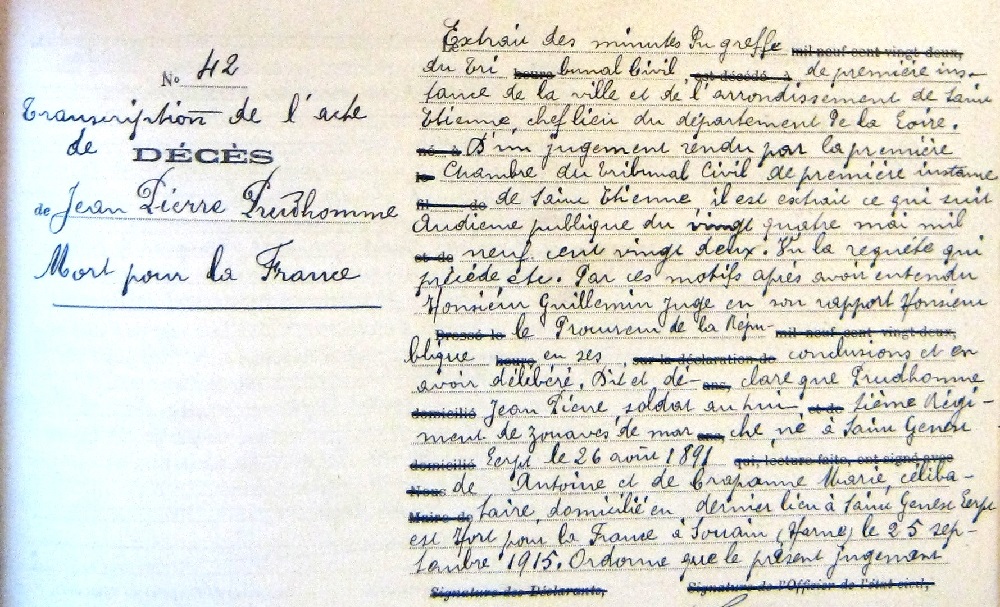 N° 42
Transcription de l'acte
de DÉCÈS
de Jean Pierre Prudhomme
Mort pour la France
Extrait des minutes Du greffe mil neuf cent vingt-deux,
du Tri heure bunal Civil, est décédé à de première ins-
tance de la ville et de l'arrondissement de Saint
Etienne, chef lieu du département De la Loire.
né à D'un jugement rendu par la première
le Chambre du Tribunal Civil de première instance
fil de de Saint Etienne, il est extrait ce qui suit
Audience publique du vingt quatre mai mil
et de neuf cent vingt deux. Vu la requête qui
précède etc. Par ces motifs après avoir entendu
Monsieur Guillemin juge en son rapport Monsieur
Dressé le le Procureur de la Répu- mil neuf cent vingt-deux,
blique heure en ses sur la déclaration de conclusions et en
avoir délibéré. Dit et dé- ans, clare que Prudhomme
domicilié Jean Pierre soldat au huit et de tième Régi-
ment de zouaves de mar ans, che, né à Saint Genest
domicilié Lerpt le 26 août 1891 qui, lecture faite, ont signé avec
Nous de Antoine et de Crapanne Marie, céliba-
Maire de taire, domicilié en dernier lieu à Saint Genest Lerpt
est Mort pour la France à Souain, (Marne) le 25 sep-
tembre 1915. Ordonne que le présent jugement
Signature des Déclarants, Signature de l'Officier de l'état civil,